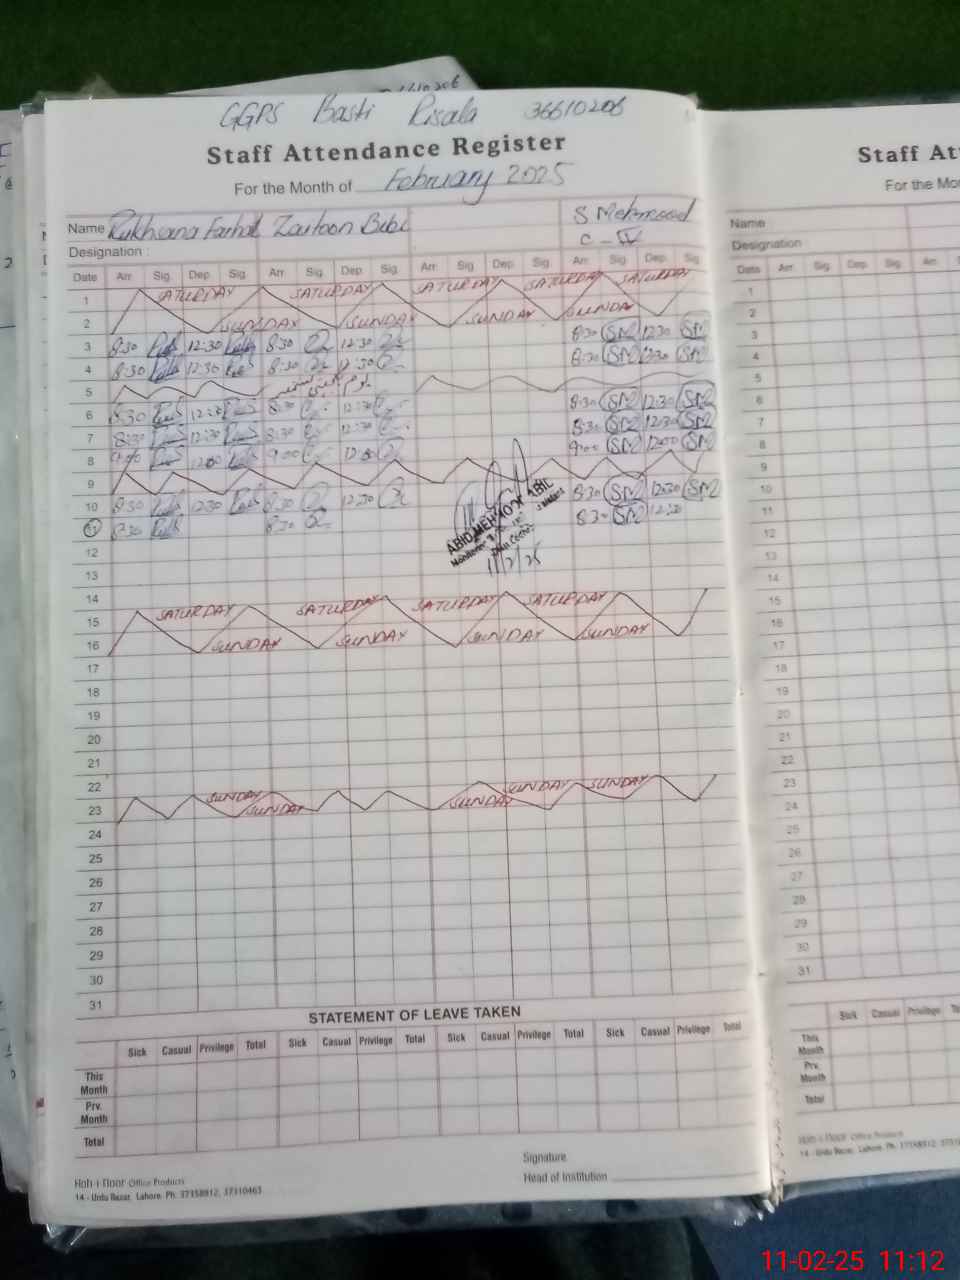 GGPS Basti Risala 36610206
Staff Attendance Register
For the Month of February 2025
Name Rukhsana Farhat Zaitoon Bibi S Mehmood
Designation : C-IV
Date Arr. Sig. Dep. Sig. Arr. Sig. Dep. Sig. Arr. Sig. Dep. Sig. Arr. Sig. Dep. Sig.
1 SATURDAY SATURDAY SATURDAY SATURDAY SATURDAY
2 SUNDAY SUNDAY SUNDAY SUNDAY
3 8:30 12:30 8:30 12:30 8:30 SM 12:30 SM
4 8:30 12:30 8:30 12:30 8:30 SM 12:30 SM
5 یوم یکجہتی کشمیر
6 8:30 12:30 8:30 12:30 8:30 SM 12:30 SM
7 8:30 12:30 8:30 12:30 8:30 SM 12:30 SM
8 9:00 12:00 9:00 12:00 9:00 SM 12:00 SM
9
10 8:30 12:30 8:30 12:30 8:30 SM 12:30 SM
11 8:30 8:30 8:30 SM 12:30
ABID MEHMOOD ABIL
11/2/25
12
13
14
15 SATURDAY SATURDAY SATURDAY SATURDAY
16 SUNDAY SUNDAY SUNDAY SUNDAY
17
18
19
20
21
22
23 SUNDAY SUNDAY SUNDAY SUNDAY SUNDAY
24
25
26
27
28
29
30
31
STATEMENT OF LEAVE TAKEN
Sick Casual Privilege Total Sick Casual Privilege Total Sick Casual Privilege Total Sick Casual Privilege Total
This Month
Prv. Month
Total
Signature
Head of Institution
Office Products
14 - Urdu Bazar, Lahore. Ph. 37358812, 37310463
Staff At
For the Mo
Name
Designation
Date Arr. Sig. Dep. Sig. Arr.
1
2
3
4
5
6
7
8
9
10
11
12
13
14
15
16
17
18
19
20
21
22
23
24
25
26
27
28
29
30
31
Sick Casual Privilege
This Month
Prv. Month
Total
Office Products
14 - Urdu Bazar, Lahore. Ph. 37358812, 3731
11-02-25 11:12